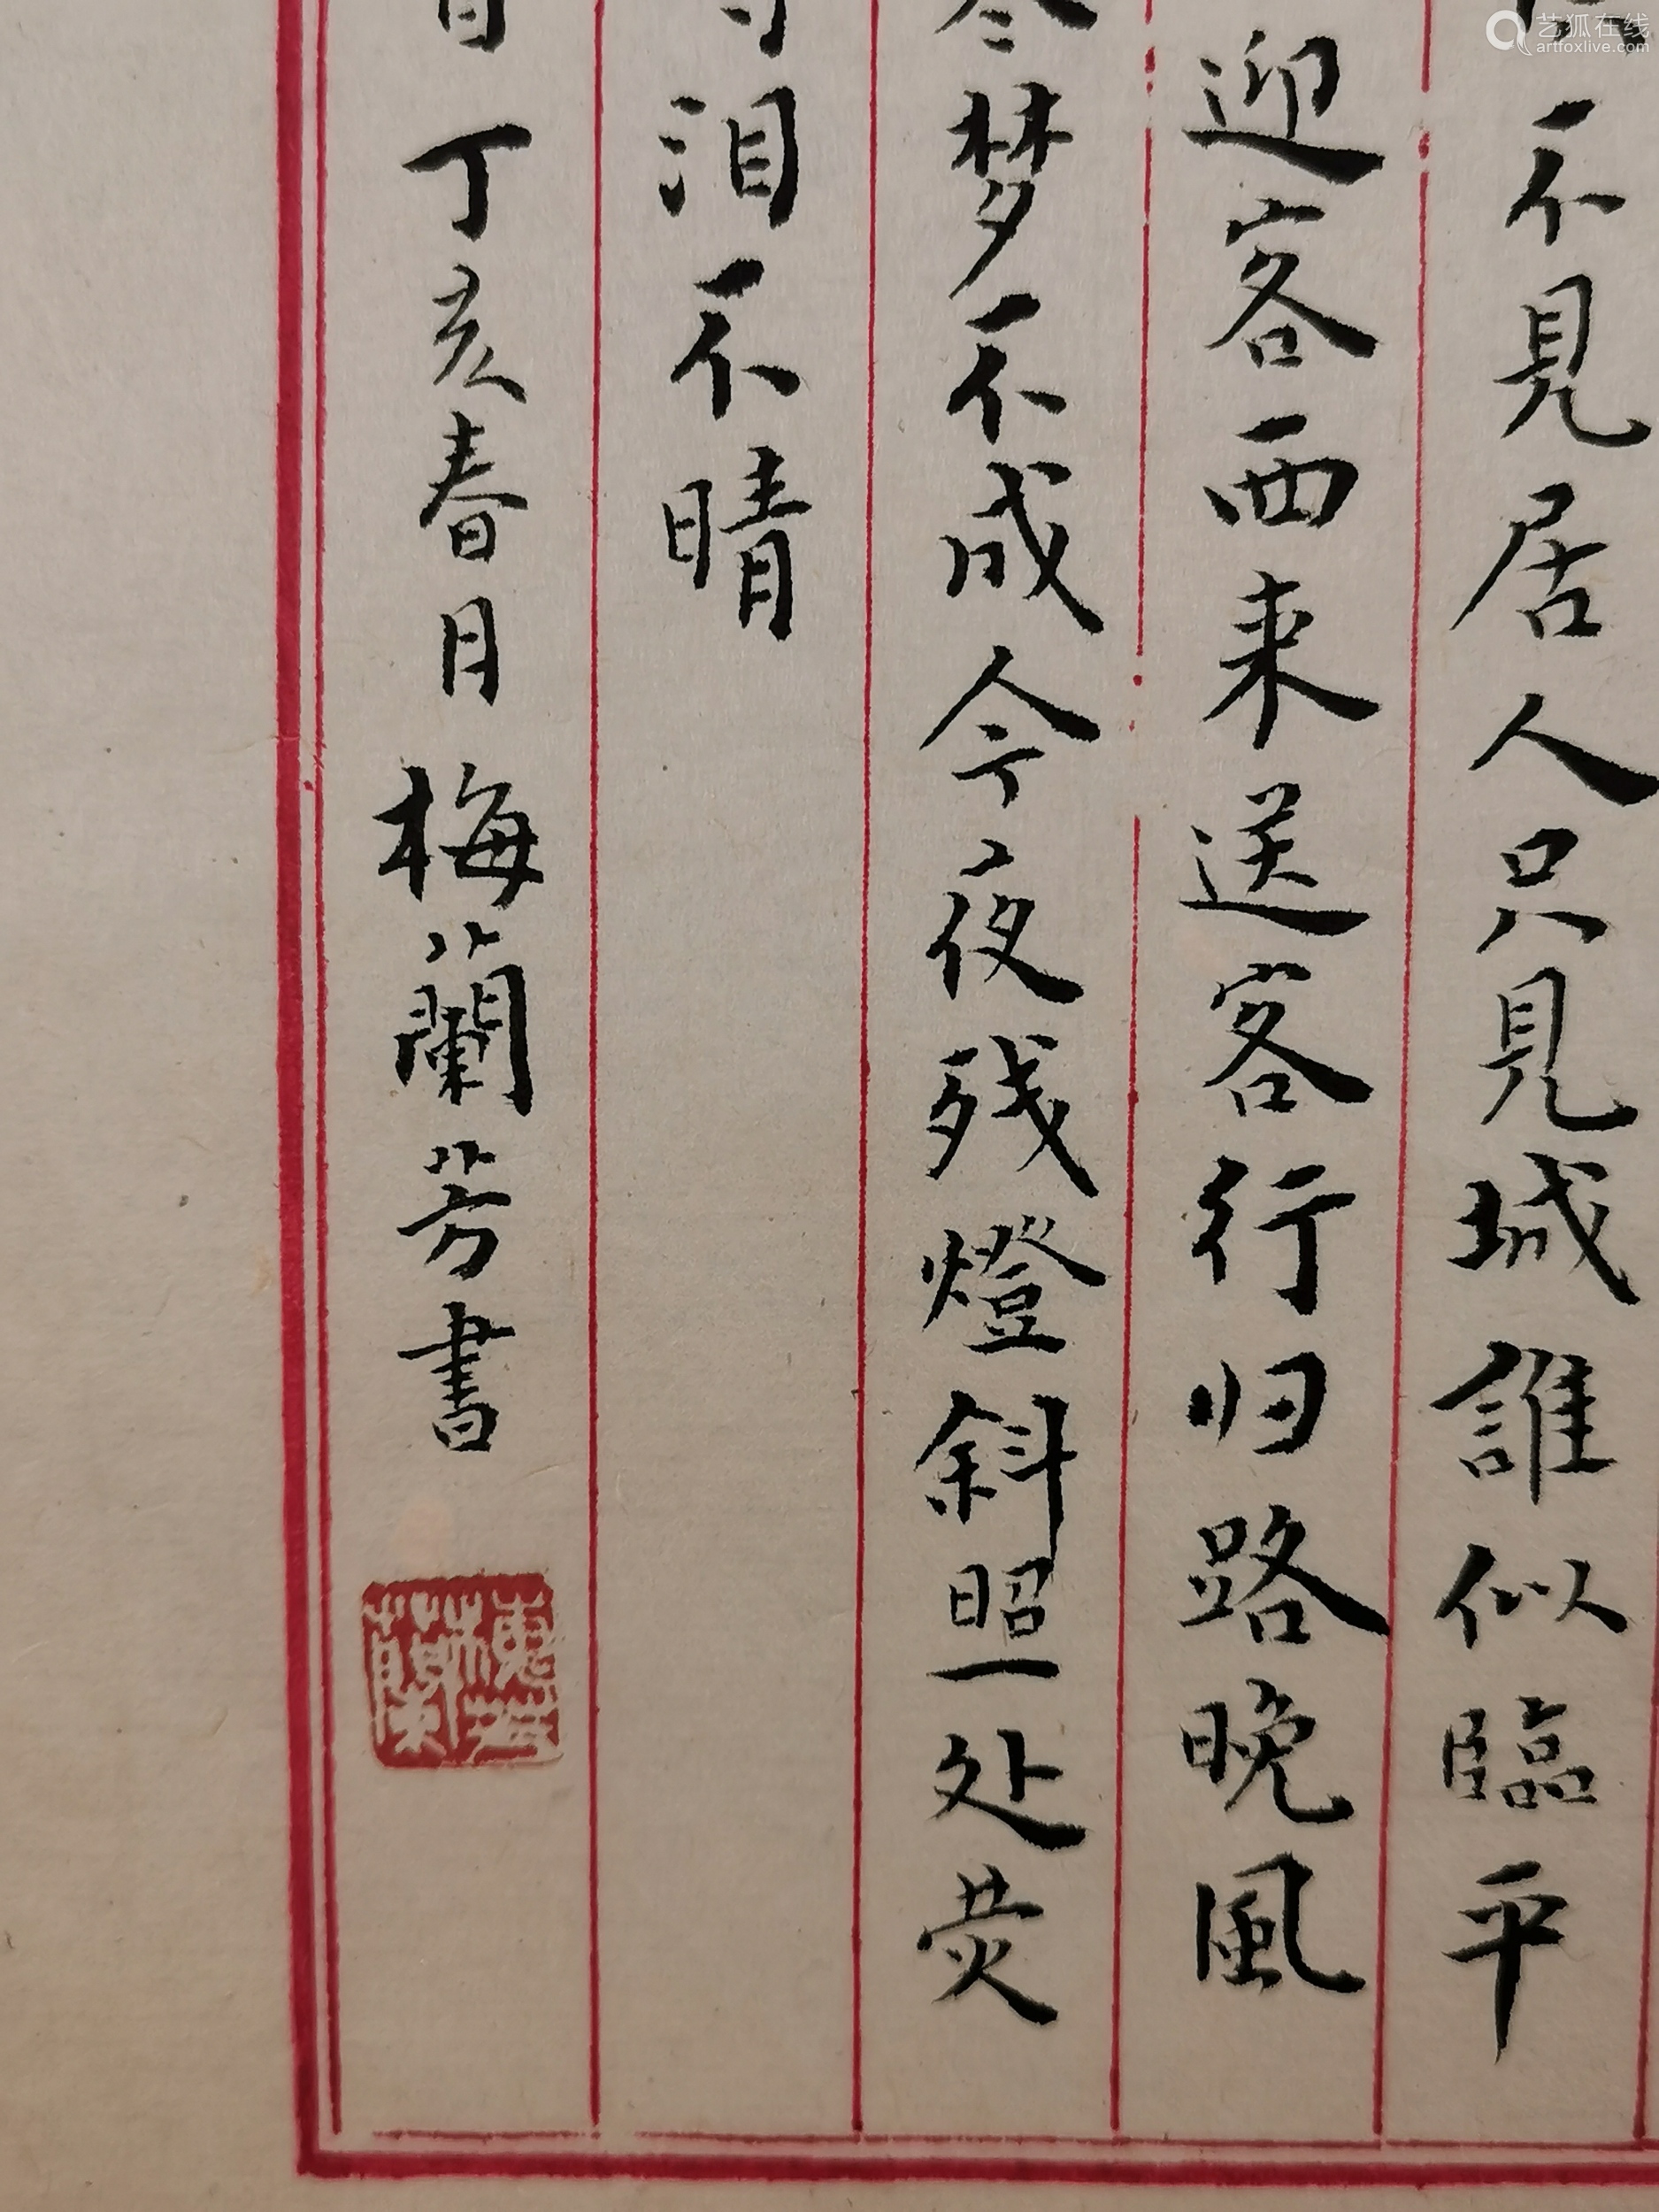 不見居人只見城誰似臨平
迎客西来送客行归路晚風
梦不成今夜残燈斜照一处荧
泪不晴
丁亥春月 梅蘭芳書
艺狐在线
artfoxlive.com